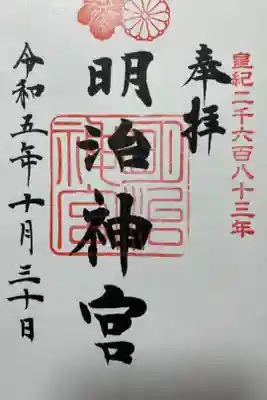 皇紀二千六百八十三年
奉拝
明治神宮
明治神宮
令和五年十月三十日